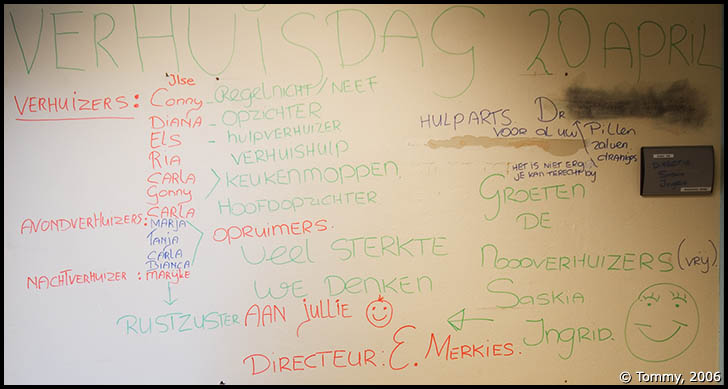 VERHUISDAG 20 APRIL
Ilse
VERHUIZERS: Conny - Regelnicht/NEEF
DIANA - OPZICHTER
ELS - hulpverhuizer
RIA VERHUISHULP
CARLA KEUKENMOPPEN
Gonny
CARLA HOOFDOPZICHTER
AVONDVERHUIZERS: MARJA OPRUIMERS.
Tanja
CARLA
BIANCA
NACHTVERHUIZER: MARYKE
RUSTZUSTER
VEEL STERKTE
WE DENKEN
AAN jullie
DIRECTEUR: E. MERKIES.
HULPARTS DR
VOOR AL UW Pillen
zalven
HET IS NIET ERG
JE KAN TERECHT by
GROETEN
DE
NOOOVERHUIZERS (vrij)
SASKIA
INGRID.
DIRECTIE
Saskia
Ingrid
© Tommy, 2006